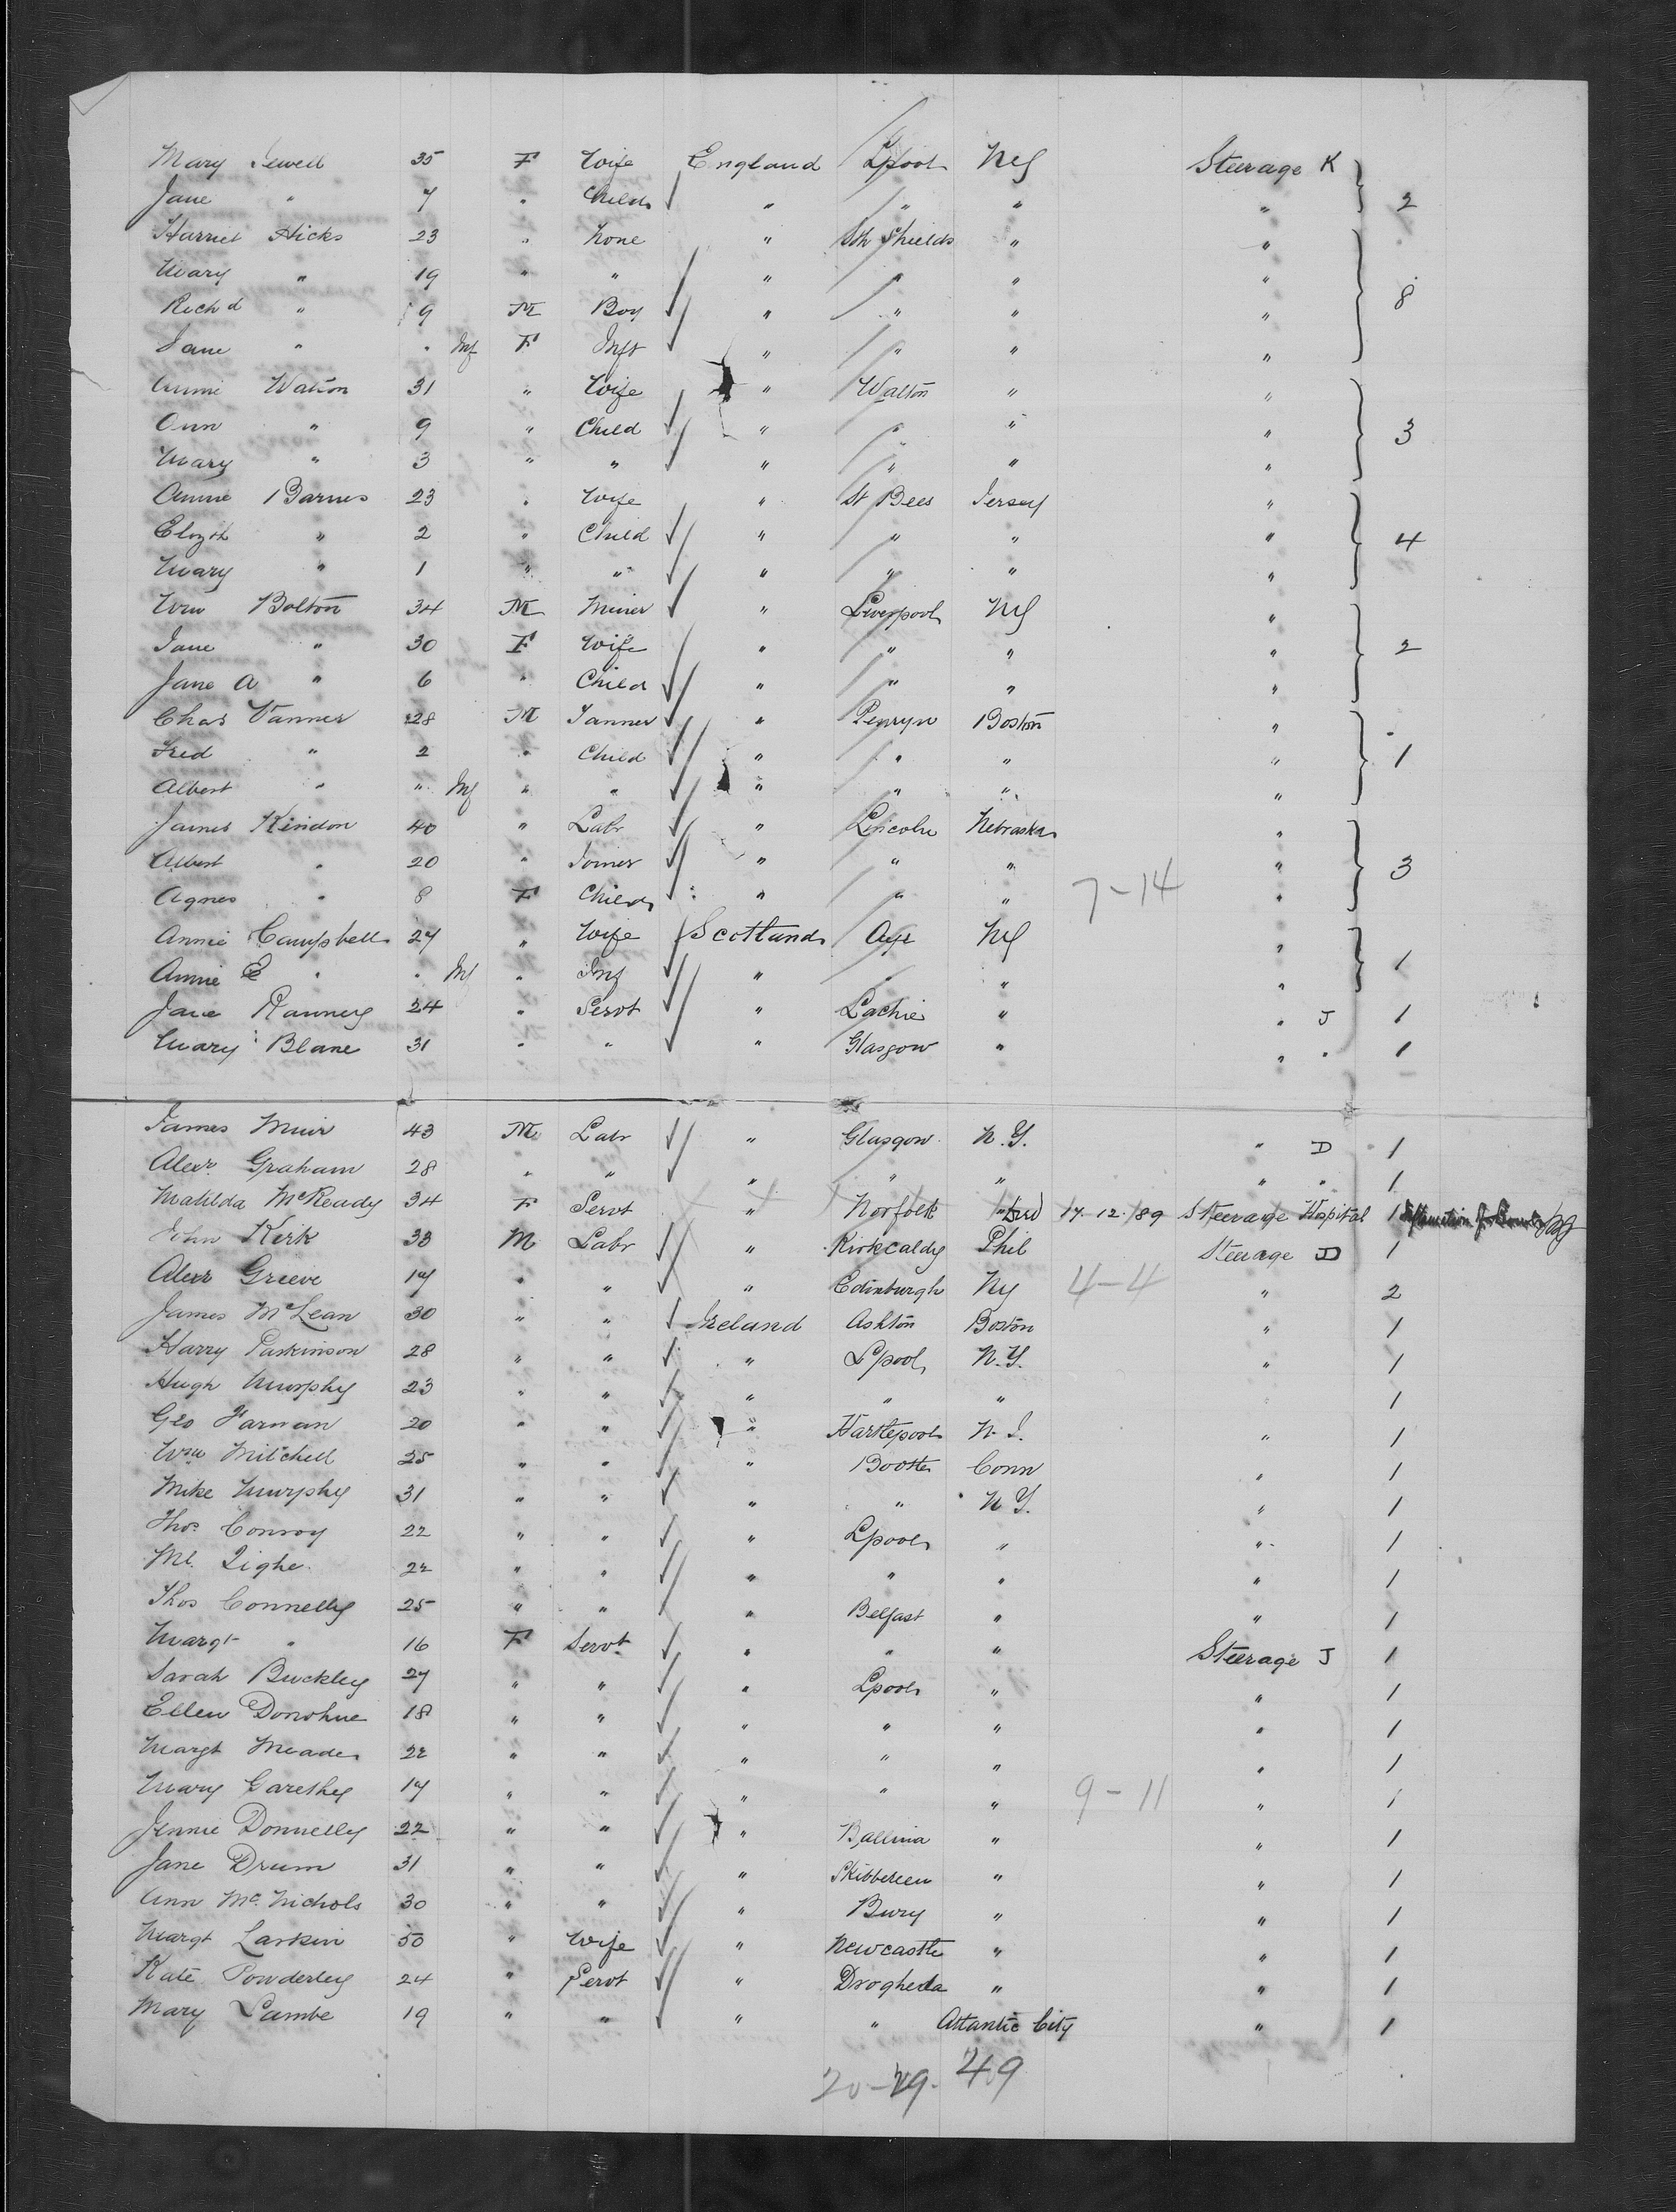 Mary Jewell 35 F Wife England Lpool NY Steerage K
Jane " 7 " Child " " " " 2
Harriet Hicks 23 " None " Sth Shields " "
Mary " 19 " " " " " "
Richd " 9 M Boy " " " " 8
Jane " " Inf F Inft " " " "
Annie Walton 31 " Wife " Walton " "
Ann " 9 " Child " " " " 3
Mary " 3 " " " " " "
Annie Barnes 23 " Wife " St Bees Jersey "
Elizth " 2 " Child " " " " 4
Mary " 1 " " " " " "
Wm Bolton 34 M Miner " Liverpool NY "
Jane " 30 F Wife " " " " 2
Jane A " 6 " Child " " " "
Chas Vanner 28 M Tanner " Penryn Boston "
Fred " 2 " Child " " " " 1
Albert " " Inf " " " " " "
James Kindon 40 " Labr " Lincoln Nebraska "
Albert " 20 " Joiner " " " " 3
Agnes " 8 F Child " " " 7-14 "
Annie Campbell 27 " Wife Scotland Ayr NY "
Annie E " " Inf " Inf " " " " 1
Jane Ranney 24 " Servt " " " J 1
Mary Blane 31 " " " Glasgow " " " 1
James Muir 43 M Labr " Glasgow N.Y. " D 1
Alexr Graham 28 " " " " " " " 1
Matilda McReady 34 F Servt " Norfolk " Died 17.12.89 Steerage Hospital 1
John Kirk 33 M Labr " Kirkcaldy Phil Steerage D 1
Alexr Grieve 17 " " " Edinburgh NY 4-4 " 2
James McLean 30 " " Ireland Ashton Boston " 1
Harry Parkinson 28 " " " Lpool N.Y. " 1
Hugh Murphy 23 " " " " " " 1
Geo Farnan 20 " " " Hartlepool N.J. " 1
Wm Mitchell 25 " " " Bootle Conn " 1
Mike Murphy 31 " " " " N.Y. " 1
Thos Conroy 22 " " " Lpool " " 1
Ml. Tighe 22 " " " " " " 1
Thos Connelly 25 " " " Belfast " " 1
Margt " 16 F Servt " " " Steerage J 1
Sarah Buckley 27 " " " Lpool " " 1
Ellen Donohue 18 " " " " " " 1
Margt Meade 22 " " " " " " 1
Mary 17 " " " " " 9-11 " 1
Jennie Donnelly 22 " " " Ballina " " 1
Jane Drum 31 " " " Skibbereen " " 1
Ann McNichols 30 " " " Bury " " 1
Margt Larkin 50 " Wife " Newcastle " " 1
Kate Powderley 24 " Servt " Drogheda " " 1
Mary Lambe 19 " " " " Atlantic City " 1
20-29. 49